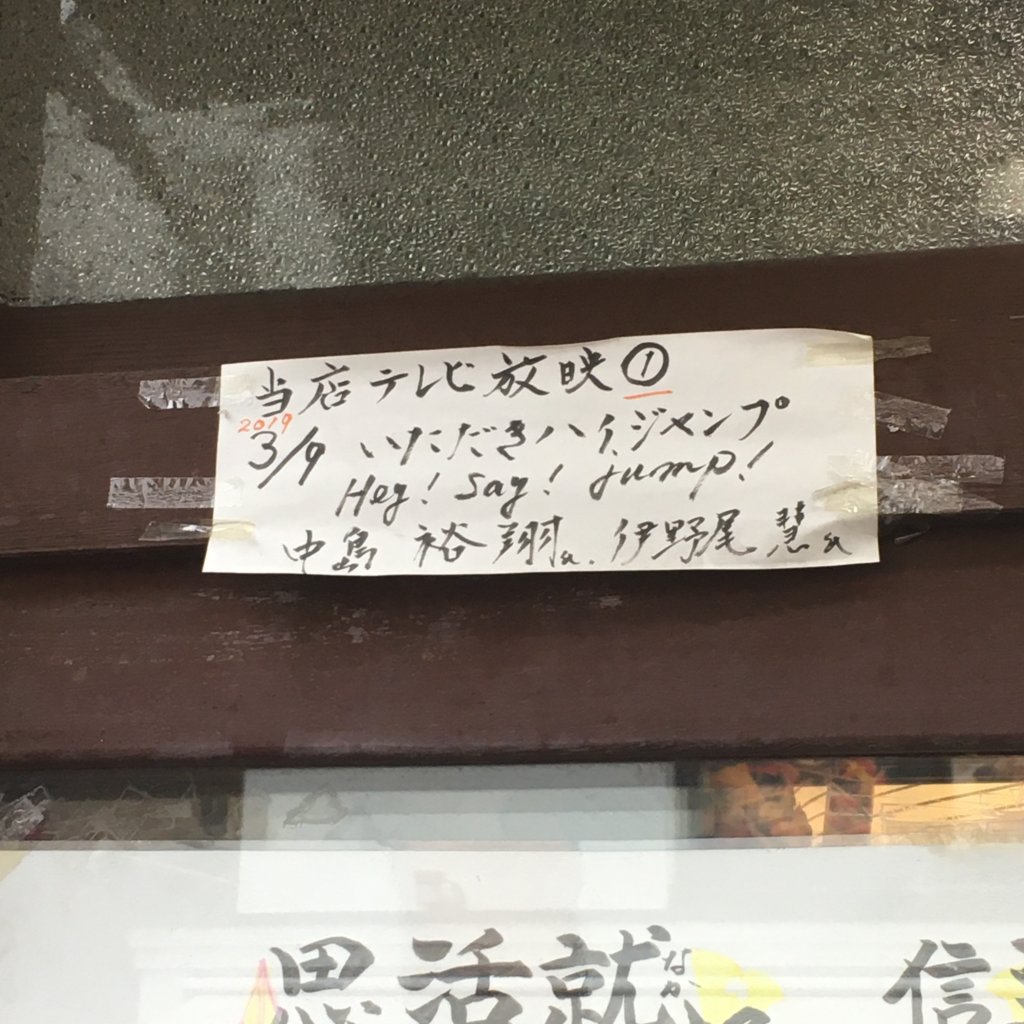 当店テレビ放映①
2019
3/9 いただきハイジャンプ
Hey! Say! Jump!
中島 裕翔氏. 伊野尾 慧氏
思活就 信
なか